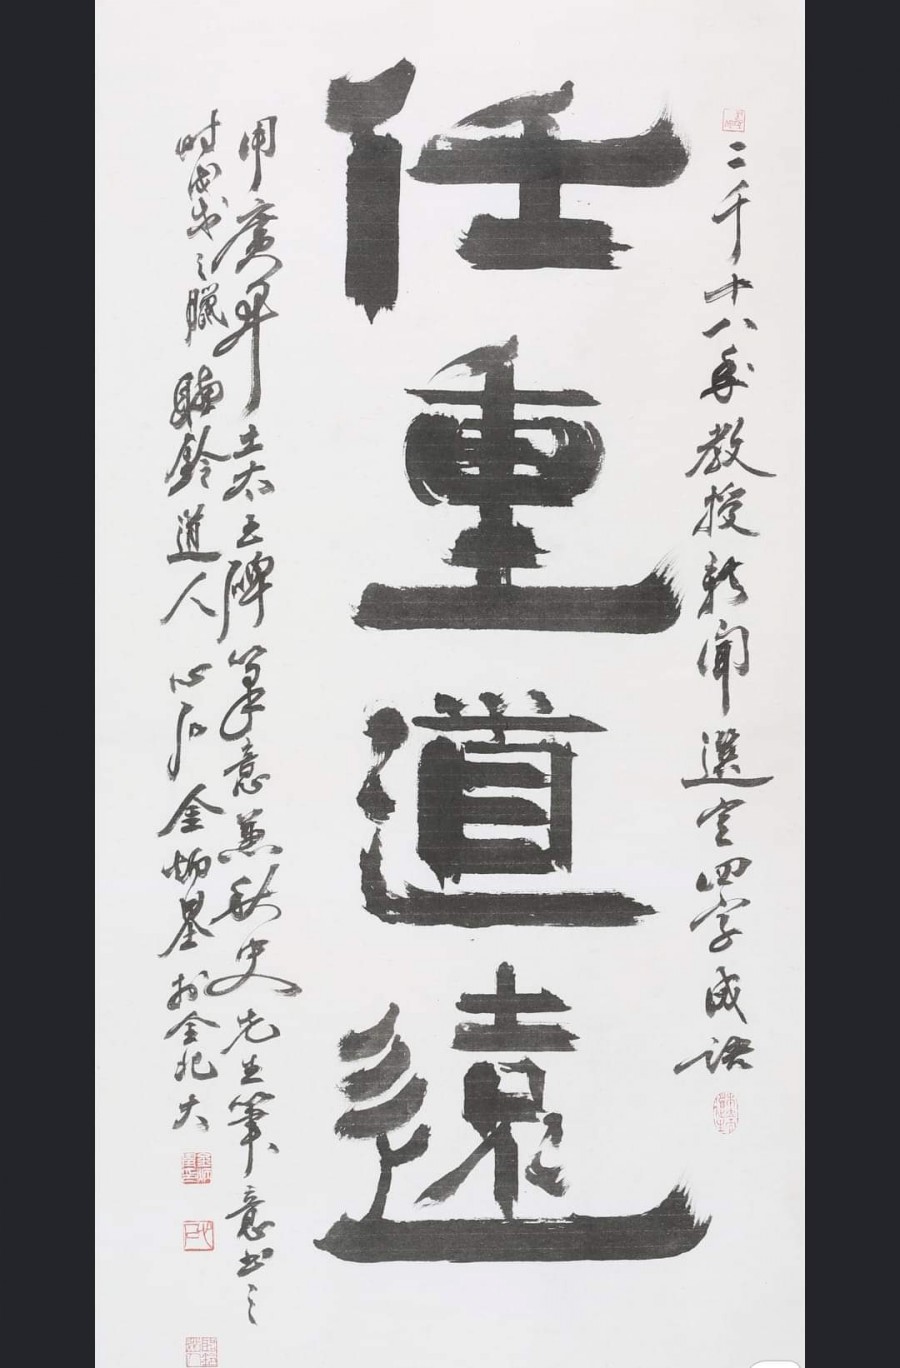 二千十八年教授新聞選定四字成語
任重道遠
用廣開土太王碑筆意兼秋史先生筆意書之
時戊戌之臘 聽鈴道人 心石 金炳基 於全北大